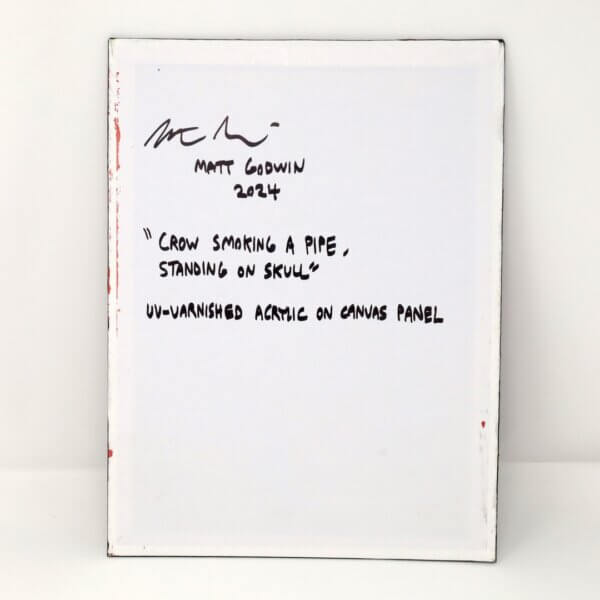 MATT GODWIN
2024
"CROW SMOKING A PIPE,
STANDING ON SKULL"
UV-VARNISHED ACRYLIC ON CANVAS PANEL